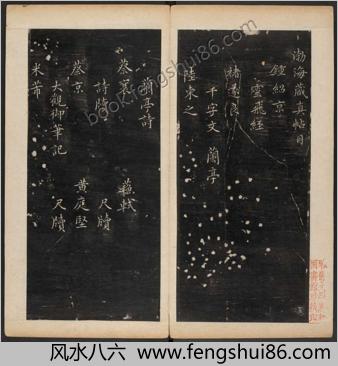 渤海藏真帖目
鍾紹京
靈飛經
褚遂良
千字文 蘭亭
陸柬之
蘭亭詩
蔡襄 蘇軾
詩牘 尺牘
蔡京 黃庭堅
大觀御筆記 尺牘
米芾
book.fengshui86.com
风水八六 www.fengshui86.com